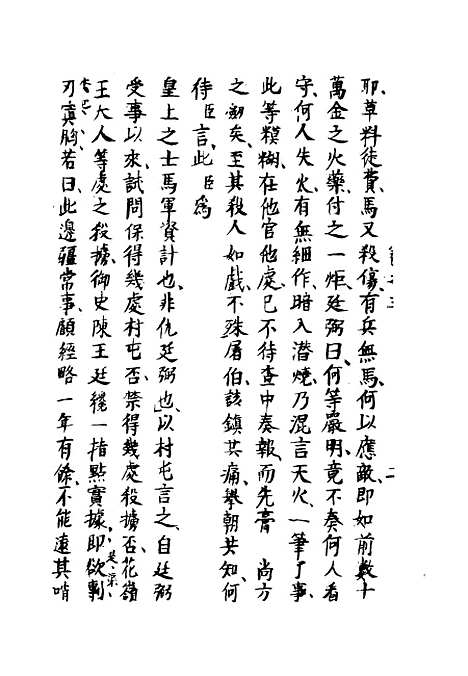 耶、草料徒費、馬又殺傷、有兵無馬、何以應敵、即如前數十
萬金之火藥、付之一炬、廷弼曰、何等嚴明、竟不奏何人看
守、何人失火、有無細作、暗入潜燒、乃混言天火、一筆了事、
此等糢糊、在他官他處、已不待查中奏報、而先膏 尚方
之劒矣、至其殺人如戲、不殊屠伯、該鎮共痛、舉朝共知、何
待臣言、此臣為
皇上之士馬軍資計也、非仇廷弼也、以村屯言之、自廷弼
受事以來、試問保得幾處村屯否、禁得幾處殺擄否、花嶺
王大人等處之殺擄、御史陳王廷纔一指點實據、即欲剸
刃寘胸、若曰、此邊疆常事、顧經略一年有餘、不能遠其哨
二